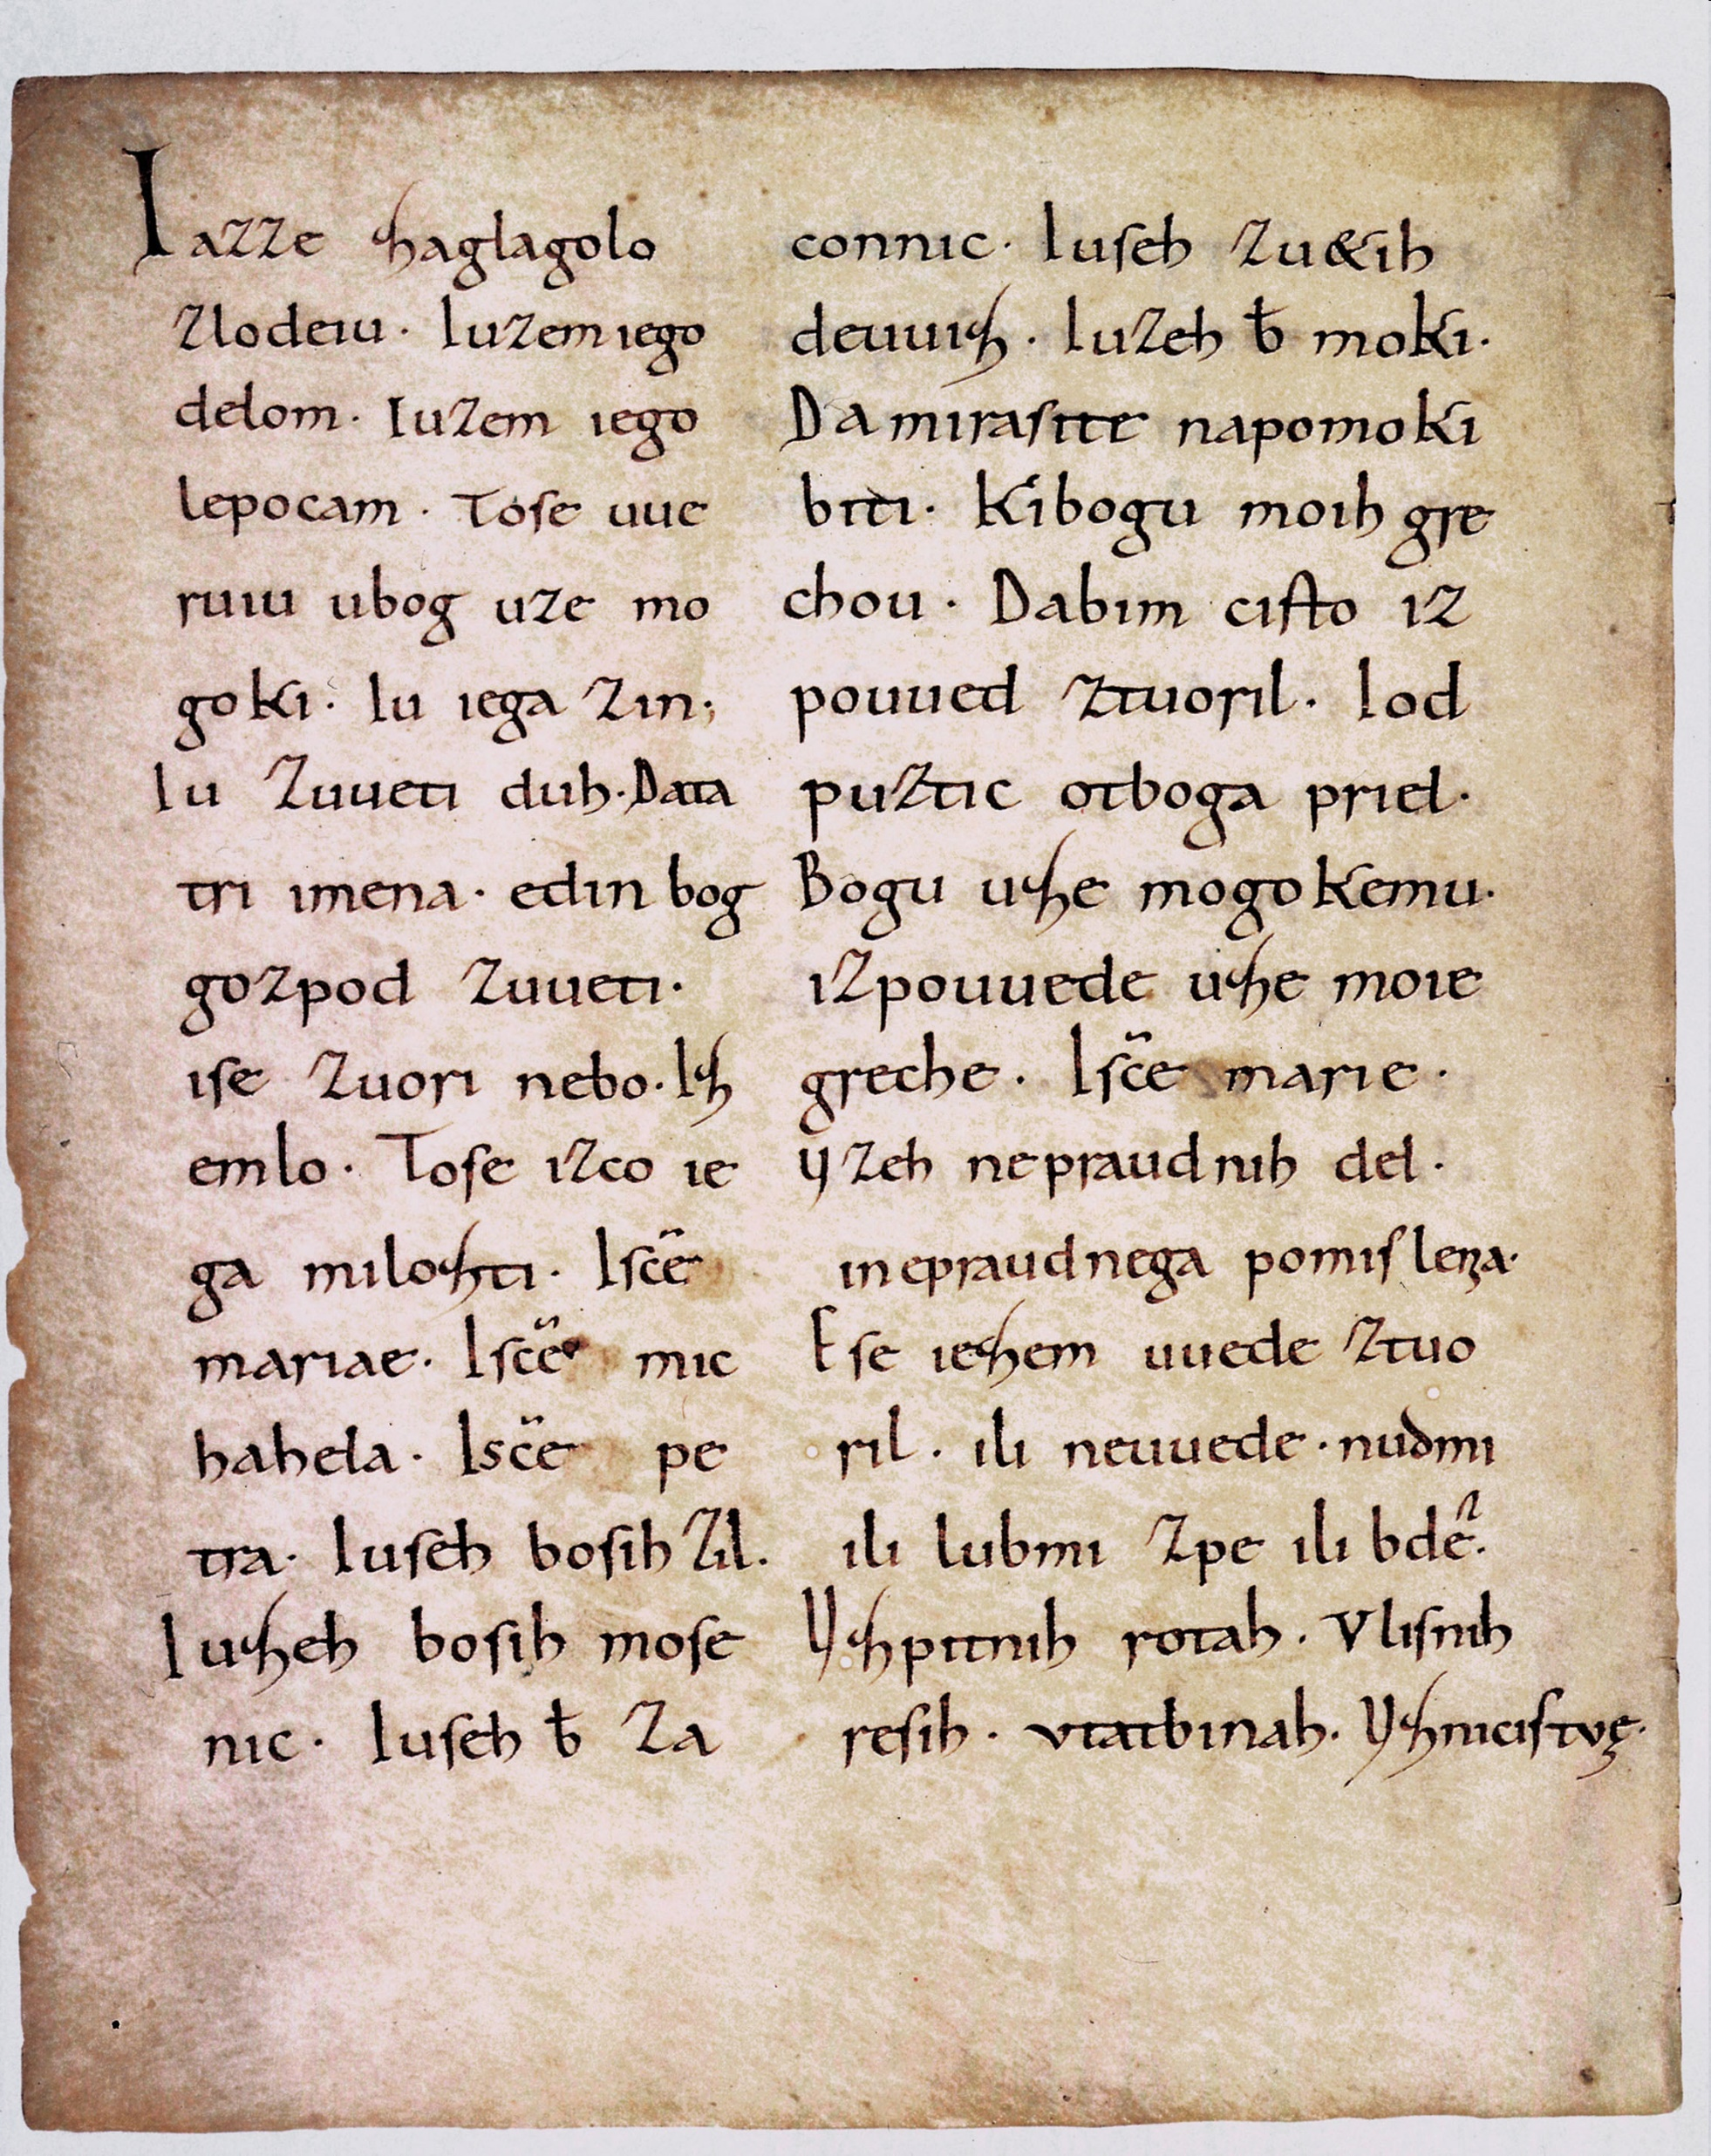 Iazze zaglagolo
zlodeiu. Iuzem iego
delom. Iuzem iego
lepocam. Tose uue
ruiu ubog uze mo
goki. Iu iega zin;
Iu zuueti duh. Data
tri imena. edin bog
gozpod zuueti.
ise zuori nebo. Iz
emlo. Tose izco ie
ga milozti. Isc̄e
mariae. Isc̄e mic
hahela. Isc̄e pe
tra. Iuseh bosih zil.
Iuzeh bosih mose
nic. Iuseh b̄ za
connic. Iuseh zu&ih
deuuiz. Iuzeh b̄ moki.
Da mirasite napomoki
biti. Kibogu moih gre
chou. Dabim cisto iz
pouued ztuoril. Iod
puztic otboga priel.
Bogu uze mogokemu.
izpouuede uze moie
greche. Isc̄e marie.
Vzeh nepraudnih del.
inepraudnega pomislena.
Ese iezem uuede ztuo
ril. ili neuuede. nudmi
ili lubmi zpe ili bde.
Vzpitnih rotah. Vlisnih
resih. vtatbinah. Vznicistvę.